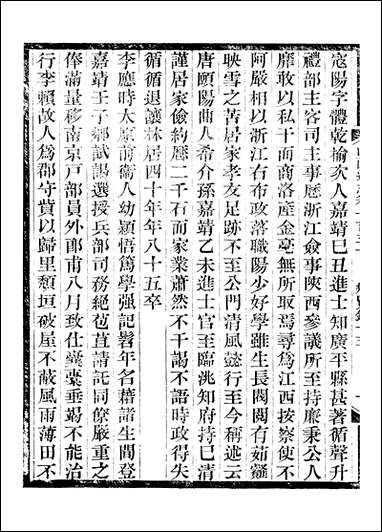 寇陽字體乾榆次人嘉靖己丑進士知廣平縣甚著循聲升
禮部主客司主事歷浙江僉事陝西參議所至持廉秉公人
靡敢以私干而商洛產金毫無所取焉尋為江西按察使不
阿嚴相以浙江右布政落職陽少好學雖生長閥閱有茹虀
映雪之苦居家孝友足跡不至公門清風懿行至今稱述云
唐頤陽曲人希介孫嘉靖乙未進士官至臨洮知府持己清
謹居家儉約歷二千石而家業蕭然不干謁不語時政得失
循循退讓林居四十年年八十五卒
李應時太原前衛人幼穎悟篤學强記髫年名藉諸生間登
嘉靖壬子鄉試謁選授兵部司務絕苞苴請託同僚嚴重之
俸滿量移南京戸部員外郎甫八月致仕囊橐垂竭不能治
行李賴故人為郡守貲以歸里頽垣破屋不蔽風雨薄田不